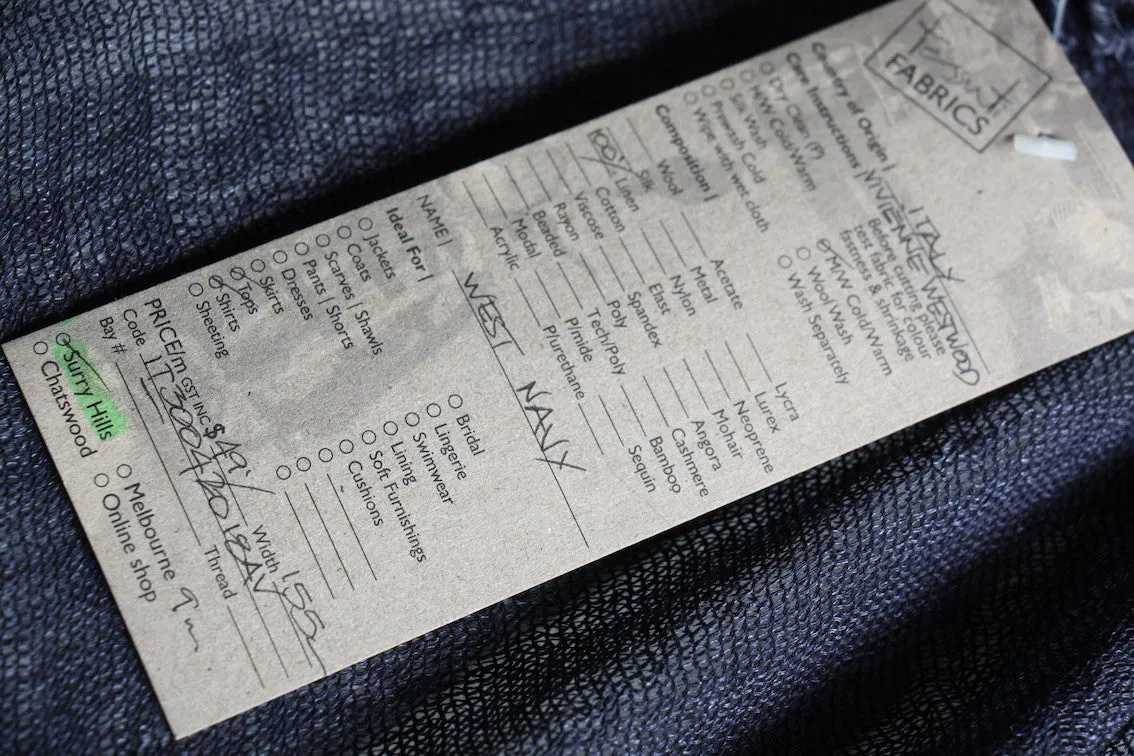 FABRICS
Country of Origin | ITALY
VIVIENNE WESTWOOD
Care Instructions |
Before cutting please
test fabric for colour
fastness & shrinkage
Dry Clean (P)
H/W Cold/Warm
Silk Wash
Prewash Cold
Wipe with wet cloth
M/W Cold/Warm
Wool Wash
Wash Separately
Composition |
Wool
Silk
100% Linen
Cotton
Viscose
Rayon
Beaded
Modal
Acrylic
Acetate
Metal
Nylon
Elast
Spandex
Poly
Tech/Poly
P/mide
P/urethane
Lycra
Lurex
Neoprene
Mohair
Angora
Cashmere
Bamboo
Sequin
NAME | WEST NAVY
Ideal For |
Jackets
Coats
Scarves | Shawls
Pants | Shorts
Dresses
Skirts
Tops
Shirts
Sheeting
Bridal
Lingerie
Swimwear
Lining
Soft Furnishings
Cushions
PRICE/m GST INC $49 Width 155
Code
Bay # Thread
Surry Hills
Chatswood
Melbourne 9m
Online shop